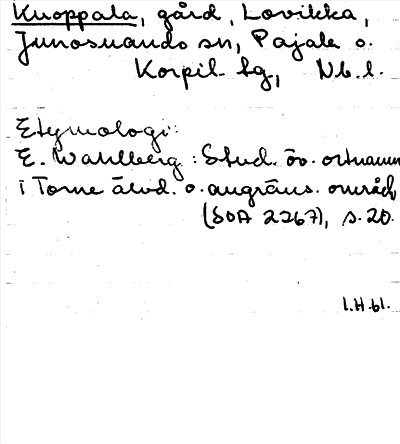 Kuoppala, gård, Lovikka,
Junosuando sn, Pajala o.
Korpil. tg, Nb. l.
Etymologi:
E. Wahlberg: Stud. öv. ortnamn
i Torne älvd. o. angräns. områd
(SOA 2267), s. 20.
I.H. 61.